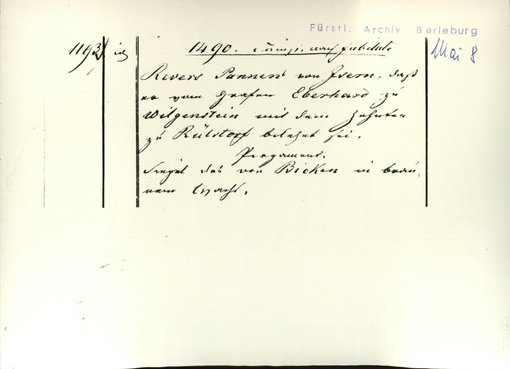 Fürstl. Archiv Berleburg
1193 1490. Dinstag nach Jubilate Mai 8
Revers Pannens von Isern, daß
er vom Grafen Eberhard zu
Witgenstein mit dem Zehnten
zu Rülstorf belehnt sei.
Pergament.
Siegel des von Bicken in brau-
nem Wachs.